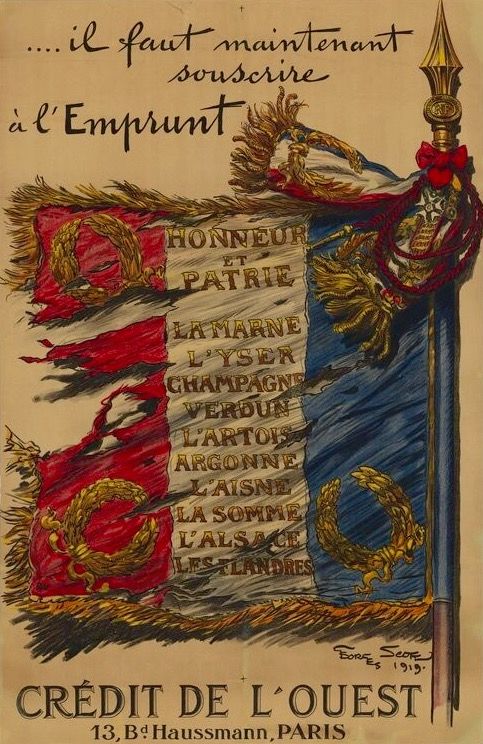 ....il faut maintenant
souscrire
à l'Emprunt
HONNEUR
ET
PATRIE
LA MARNE
L'YSER
CHAMPAGNE
VERDUN
L'ARTOIS
ARGONNE
L'AISNE
LA SOMME
L'ALSACE
LES FLANDRES
GEORGES SCOTT
1919.
CRÉDIT DE L'OUEST
13, Bd Haussmann, PARIS